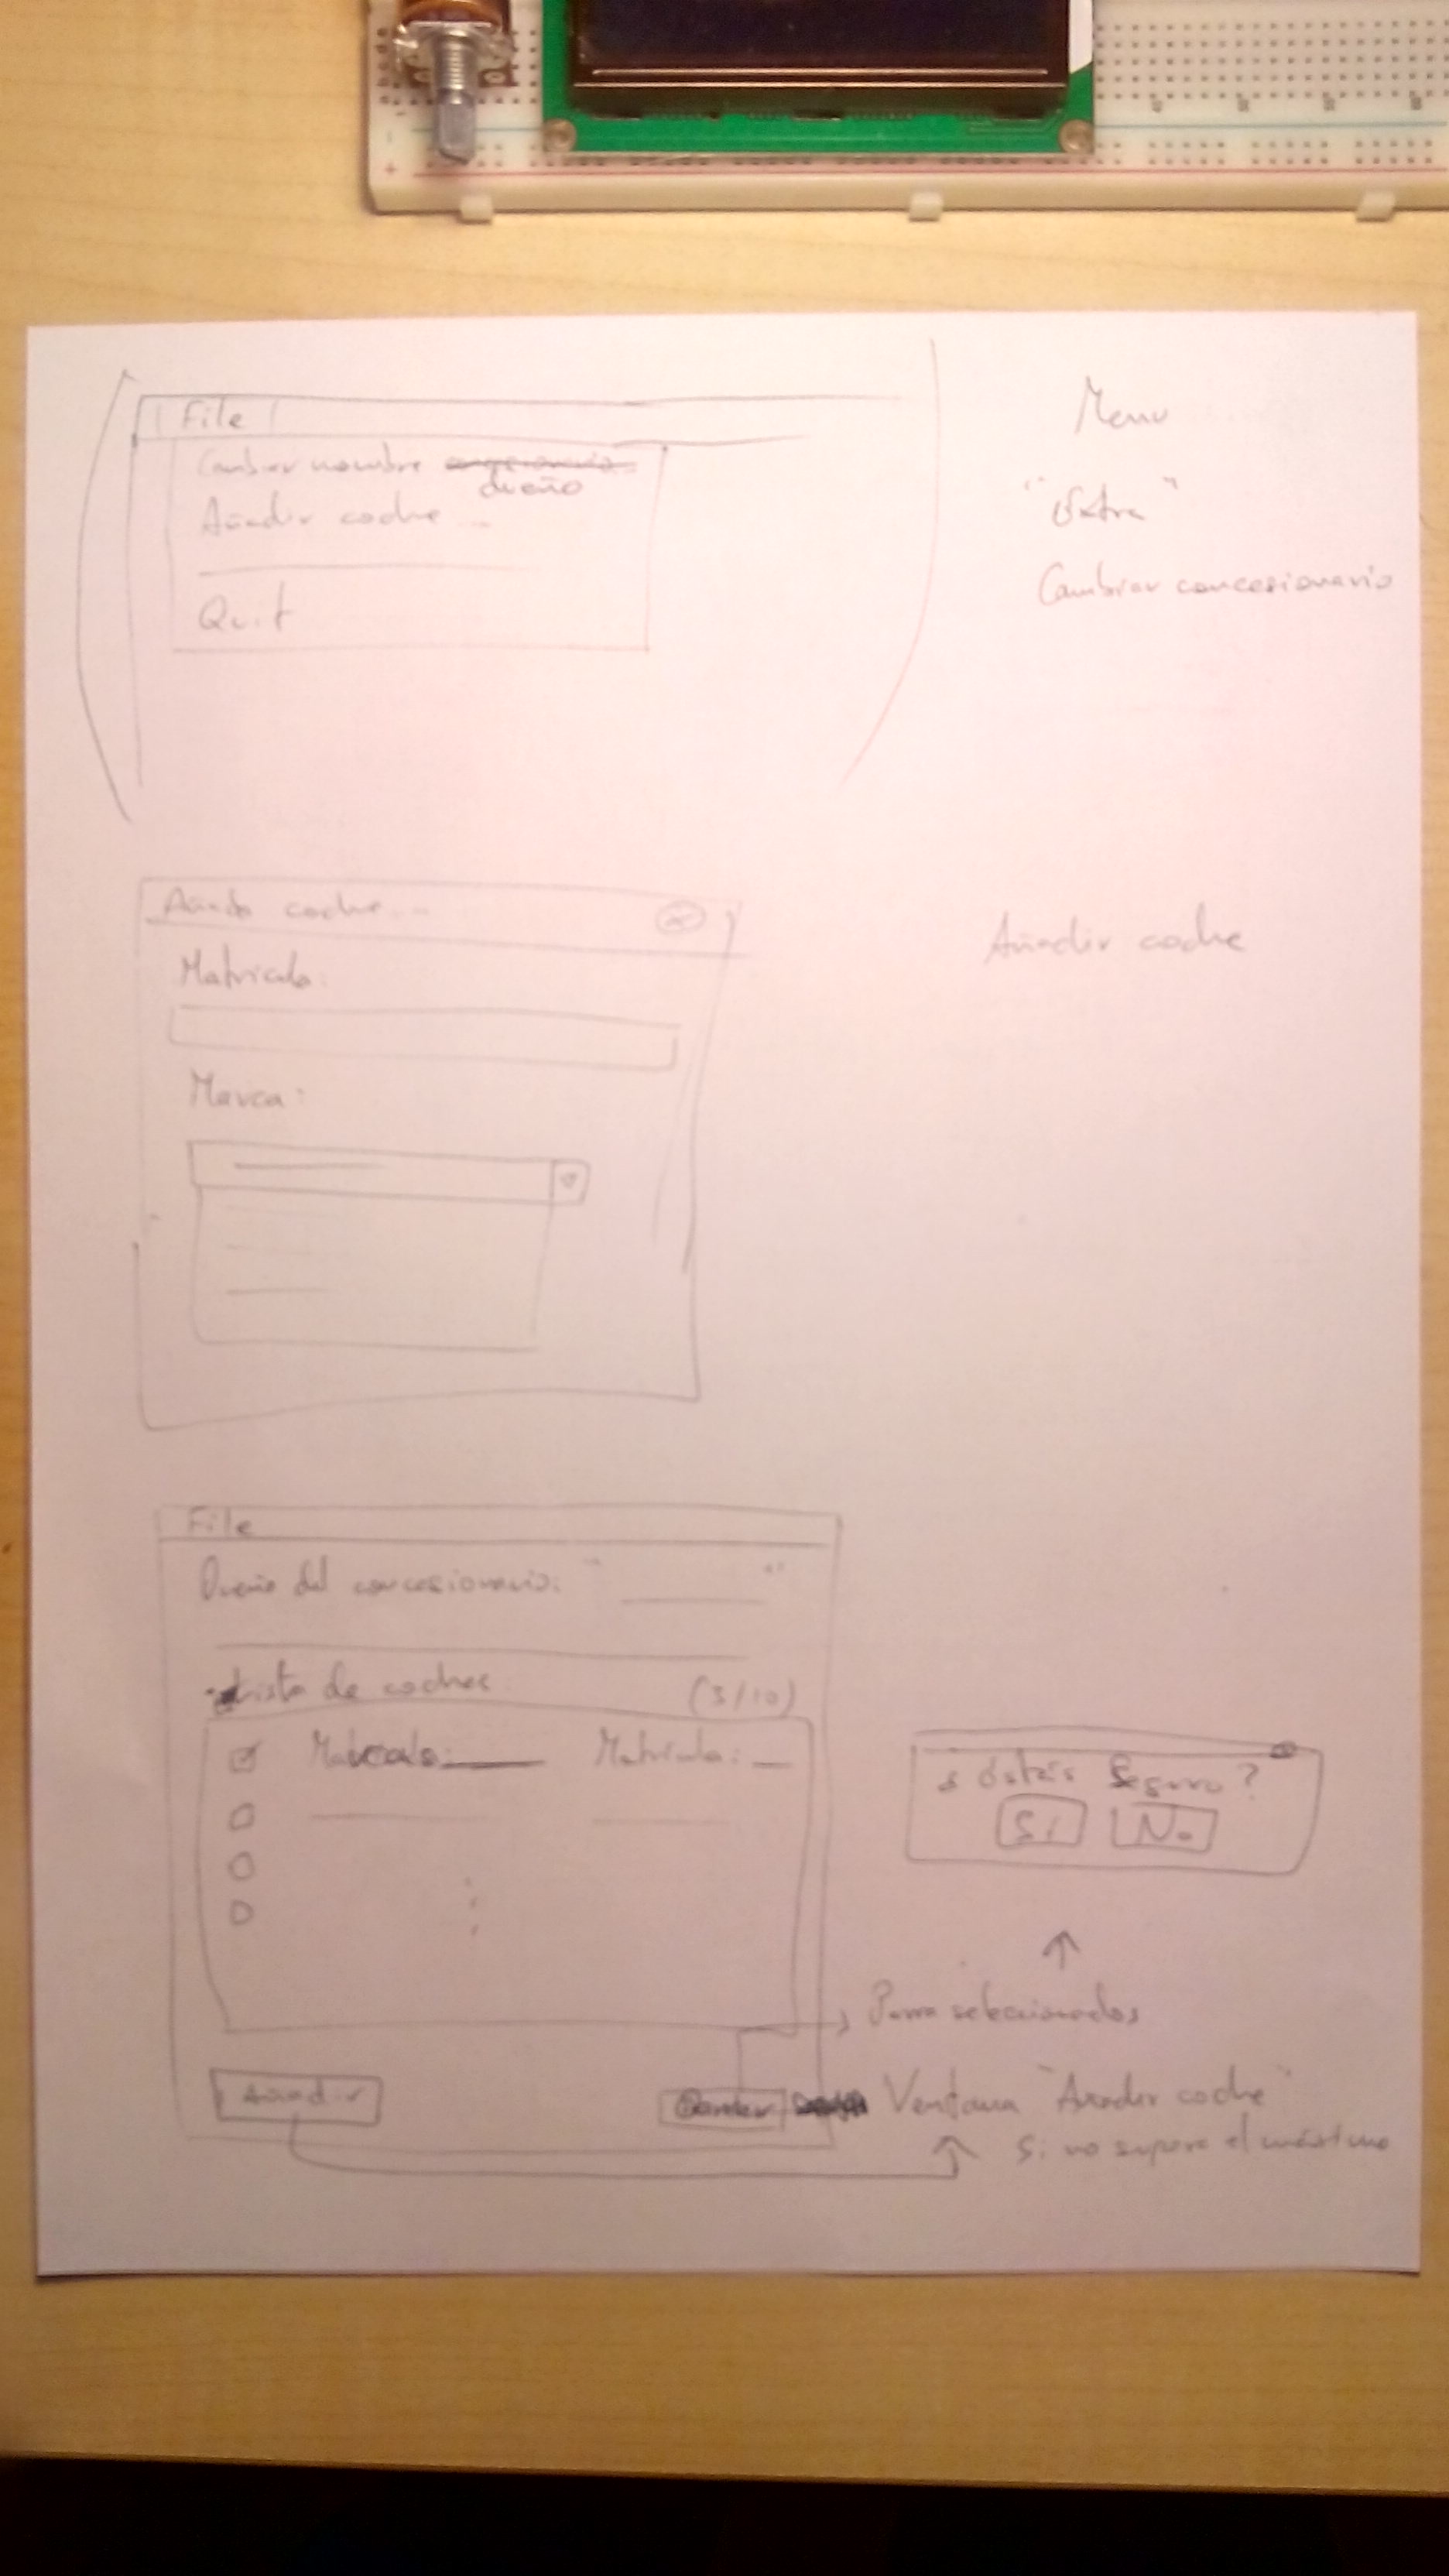 File
Cambiar nombre
dueño
Añadir coche ...
Quit
Menu
"Extra"
Cambiar concesionario
Añadir coche
Matricula:
Marca:
Añadir coche
File
Dueño del concesionario: " "
Lista de coches (3/10)
Matricula:
¿Estás Seguro?
Si No
Para seleccionados
Añadir
Ventana "Anadir coche"
Si no supera el máximo